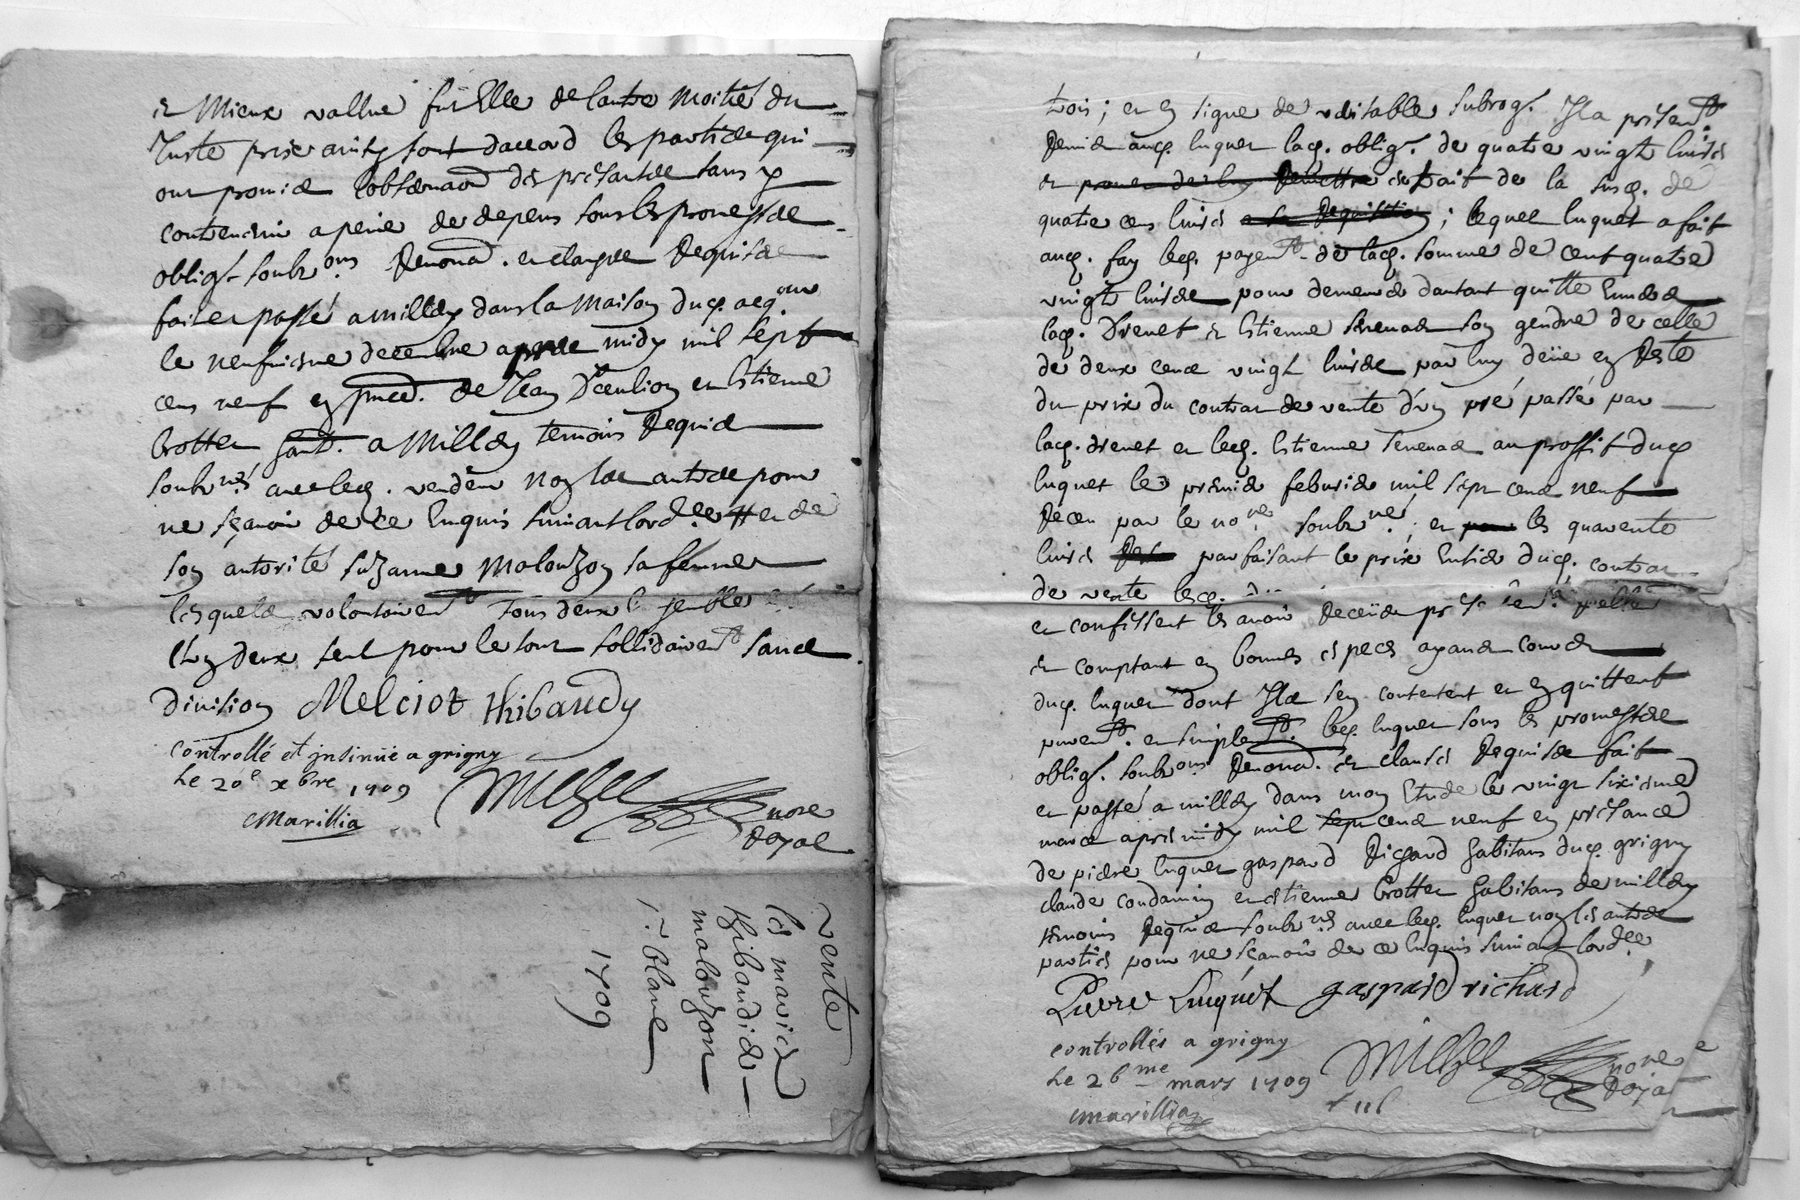 et Mieux vallue fut Elle de lautre Moitié du
Juste prix ainsy sont daccord les parties qui
ont promis lobserva͠o͠n des présantes sans y
contrevenir a peine de despens sous les promesses
oblig͠. soubz͠ons Renona͠. et clauses Requises
fait et passé a millery dans la Maison du͠q. acq͠eur
le neufviesme decembre apres midy mil sept
cens neuf en p͠nce de Jean et Estienne
Crottier hant. a Millery temoins Requis
soubz͠nés avec le͠q. vendeur non les autres pour
ne sçavoir de ce Enquis suivant lord͠ce et de
son autorité suzanne Malouzon sa femme
lesquels volontairem͠t Tous deux
L'un deux seul pour le tout sollidairem͠t sans
Division Melciot thibaudy
controllé et jnsinüé a grigny
Le 20e xbre 1709
Marillia
nore
Royal
vente
les mariés
thibaudier
malouzon
blanc
1709
trois ; et en signe de veritable subrog͠. Jl a présentem͠t
Remis au͠q. luquet la͠q. oblig͠. de quatre vingt livres
et de la sus͠q. de
quatre cens livres ; lequel luquet a fait
au͠q. le͠q. payem͠t de la͠q. somme de cent quatre
vingt livres pour demeurer dautant quitte Envers
la͠q. Drevet et Estienne son gendre de celle
de deux cens vingt livres par luy deüe en Reste
du prix du contrat de vente d'un pré passé par
la͠q. drevet et le͠q. Estienne au proffit du͠q
luquet le premier febvrier mil sept cens neuf
Receu par le no͠re soubz͠né ; et les quarente
livres parfaisant le prix Entier du͠q. contrat
de vente les͠q.
et confessent les avoir Receües
et comptant en bonnes especes ayans cours
du͠q. luquet dont Jls sen contentent et en quittent
purem͠t. et simplem͠t. le͠q. luquet sous les promesses
oblig͠. soubz͠ons Renona͠. et clauses Requises fait
et passé a millery dans mon Etude le vingt sixieme
mars apres midy mil sept cens neuf en présance
de pierre luquet gaspard Richard habitans du͠q. grigny
claude condamin et estienne Crottier habitans de millery
témoins Requis soubz͠nés avec le͠q. luquet non les autres
parties pour ne sçavoir de ce Enquis suivant lord͠ce.
Pierre Luquet gaspard richard
controllés a grigny
Le 26me mars 1709
marillia
nore
Royal